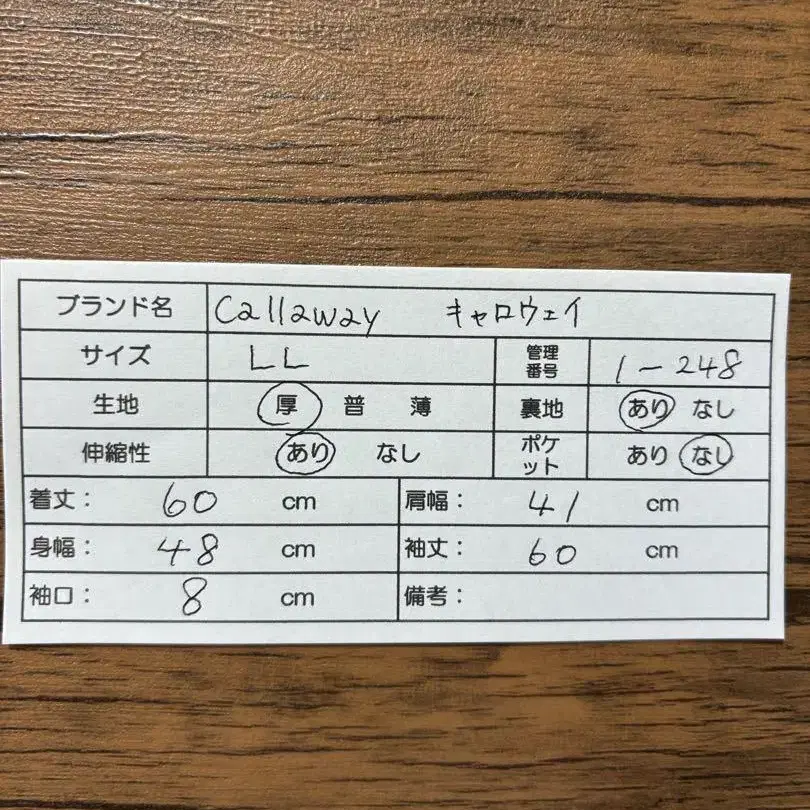 ブランド名 Callaway キャロウェイ
サイズ LL 管理番号 1-248
生地 厚 普 薄 裏地 あり なし
伸縮性 あり なし ポケット あり なし
着丈: 60 cm 肩幅: 41 cm
身幅: 48 cm 袖丈: 60 cm
袖口: 8 cm 備考: